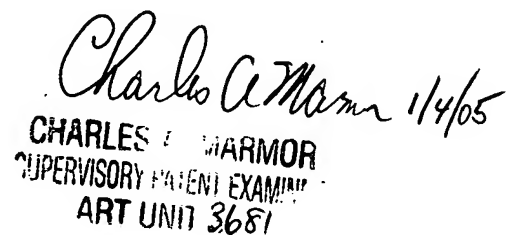 Charles A Marmor 1/4/05
CHARLES MARMOR
SUPERVISORY PATENT EXAMIN
ART UNIT 3681